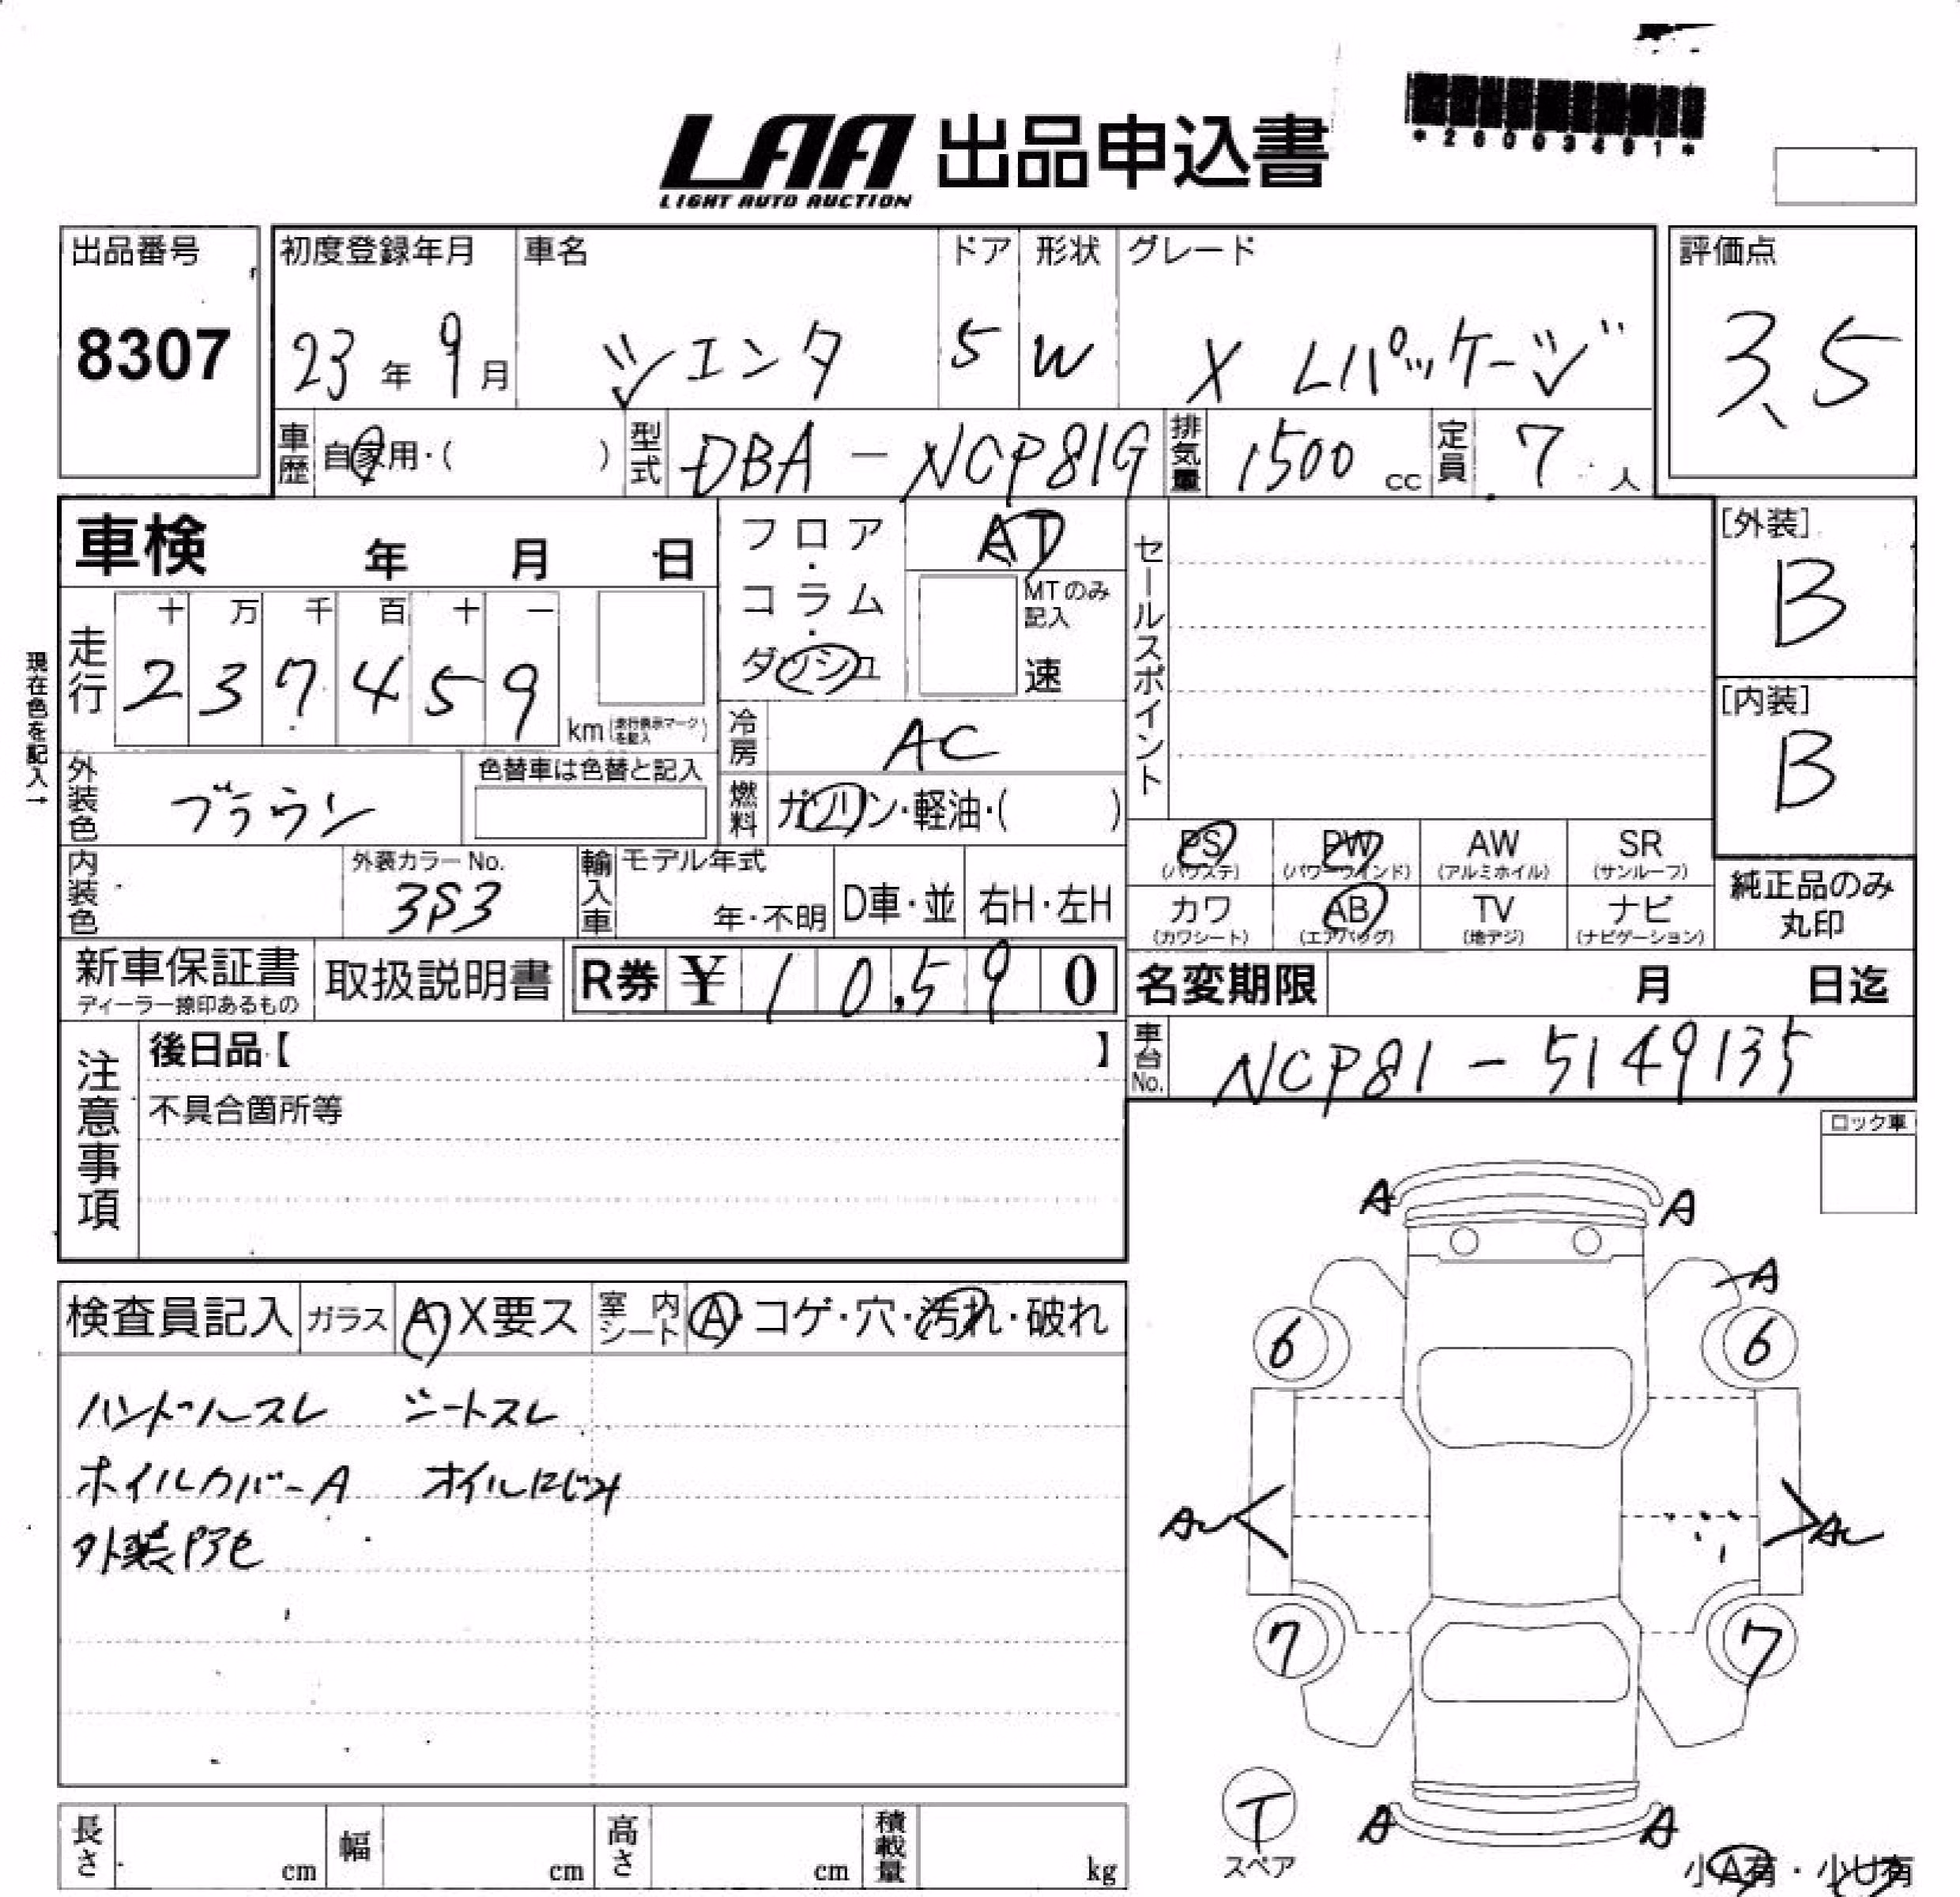 LAA 出品申込書
LIGHT AUTO AUCTION
*26003491*
出品番号
8307
初度登録年月
23年 9月
車名
シエンタ
ドア
5
形状
W
グレード
X Lパッケージ
評価点
3.5
車歴 自家用・( )
型式 DBA-NCP81G
排気量 1500 cc
定員 7 人
車検 年 月 日
フロア・コラム・ダッシュ
AT
MTのみ記入
速
セールスポイント
[外装]
B
[内装]
B
現在色を記入→
走行
十 万 千 百 十 一
2 3 7 4 5 9
km(走行表示マークを記入)
冷房 AC
燃料 ガソリン・軽油・( )
外装色 ブラウン
色替車は色替と記入
内装色
外装カラーNo.
3P3
輸入車
モデル年式
年・不明
D車・並
右H・左H
PS (パワステ)
PW (パワーウインド)
AW (アルミホイル)
SR (サンルーフ)
カワ (カワシート)
AB (エアバッグ)
TV (地デジ)
ナビ (ナビゲーション)
純正品のみ
丸印
新車保証書
ディーラー捺印あるもの
取扱説明書
R券 ¥ 1 0,5 9 0
名変期限 月 日迄
車台No. NCP81-5149135
注意事項
後日品【 】
不具合箇所等
ロック車
検査員記入
ガラス A X要ス
室内シート A・コゲ・穴・汚れ・破れ
ハンドルスレ シートスレ
ホイルカバーA オイルにじみ
外装
A A
A
6 6
7 7
T
スペア
A A
小A有・小U有
長さ cm
幅 cm
高さ cm
積載量 kg